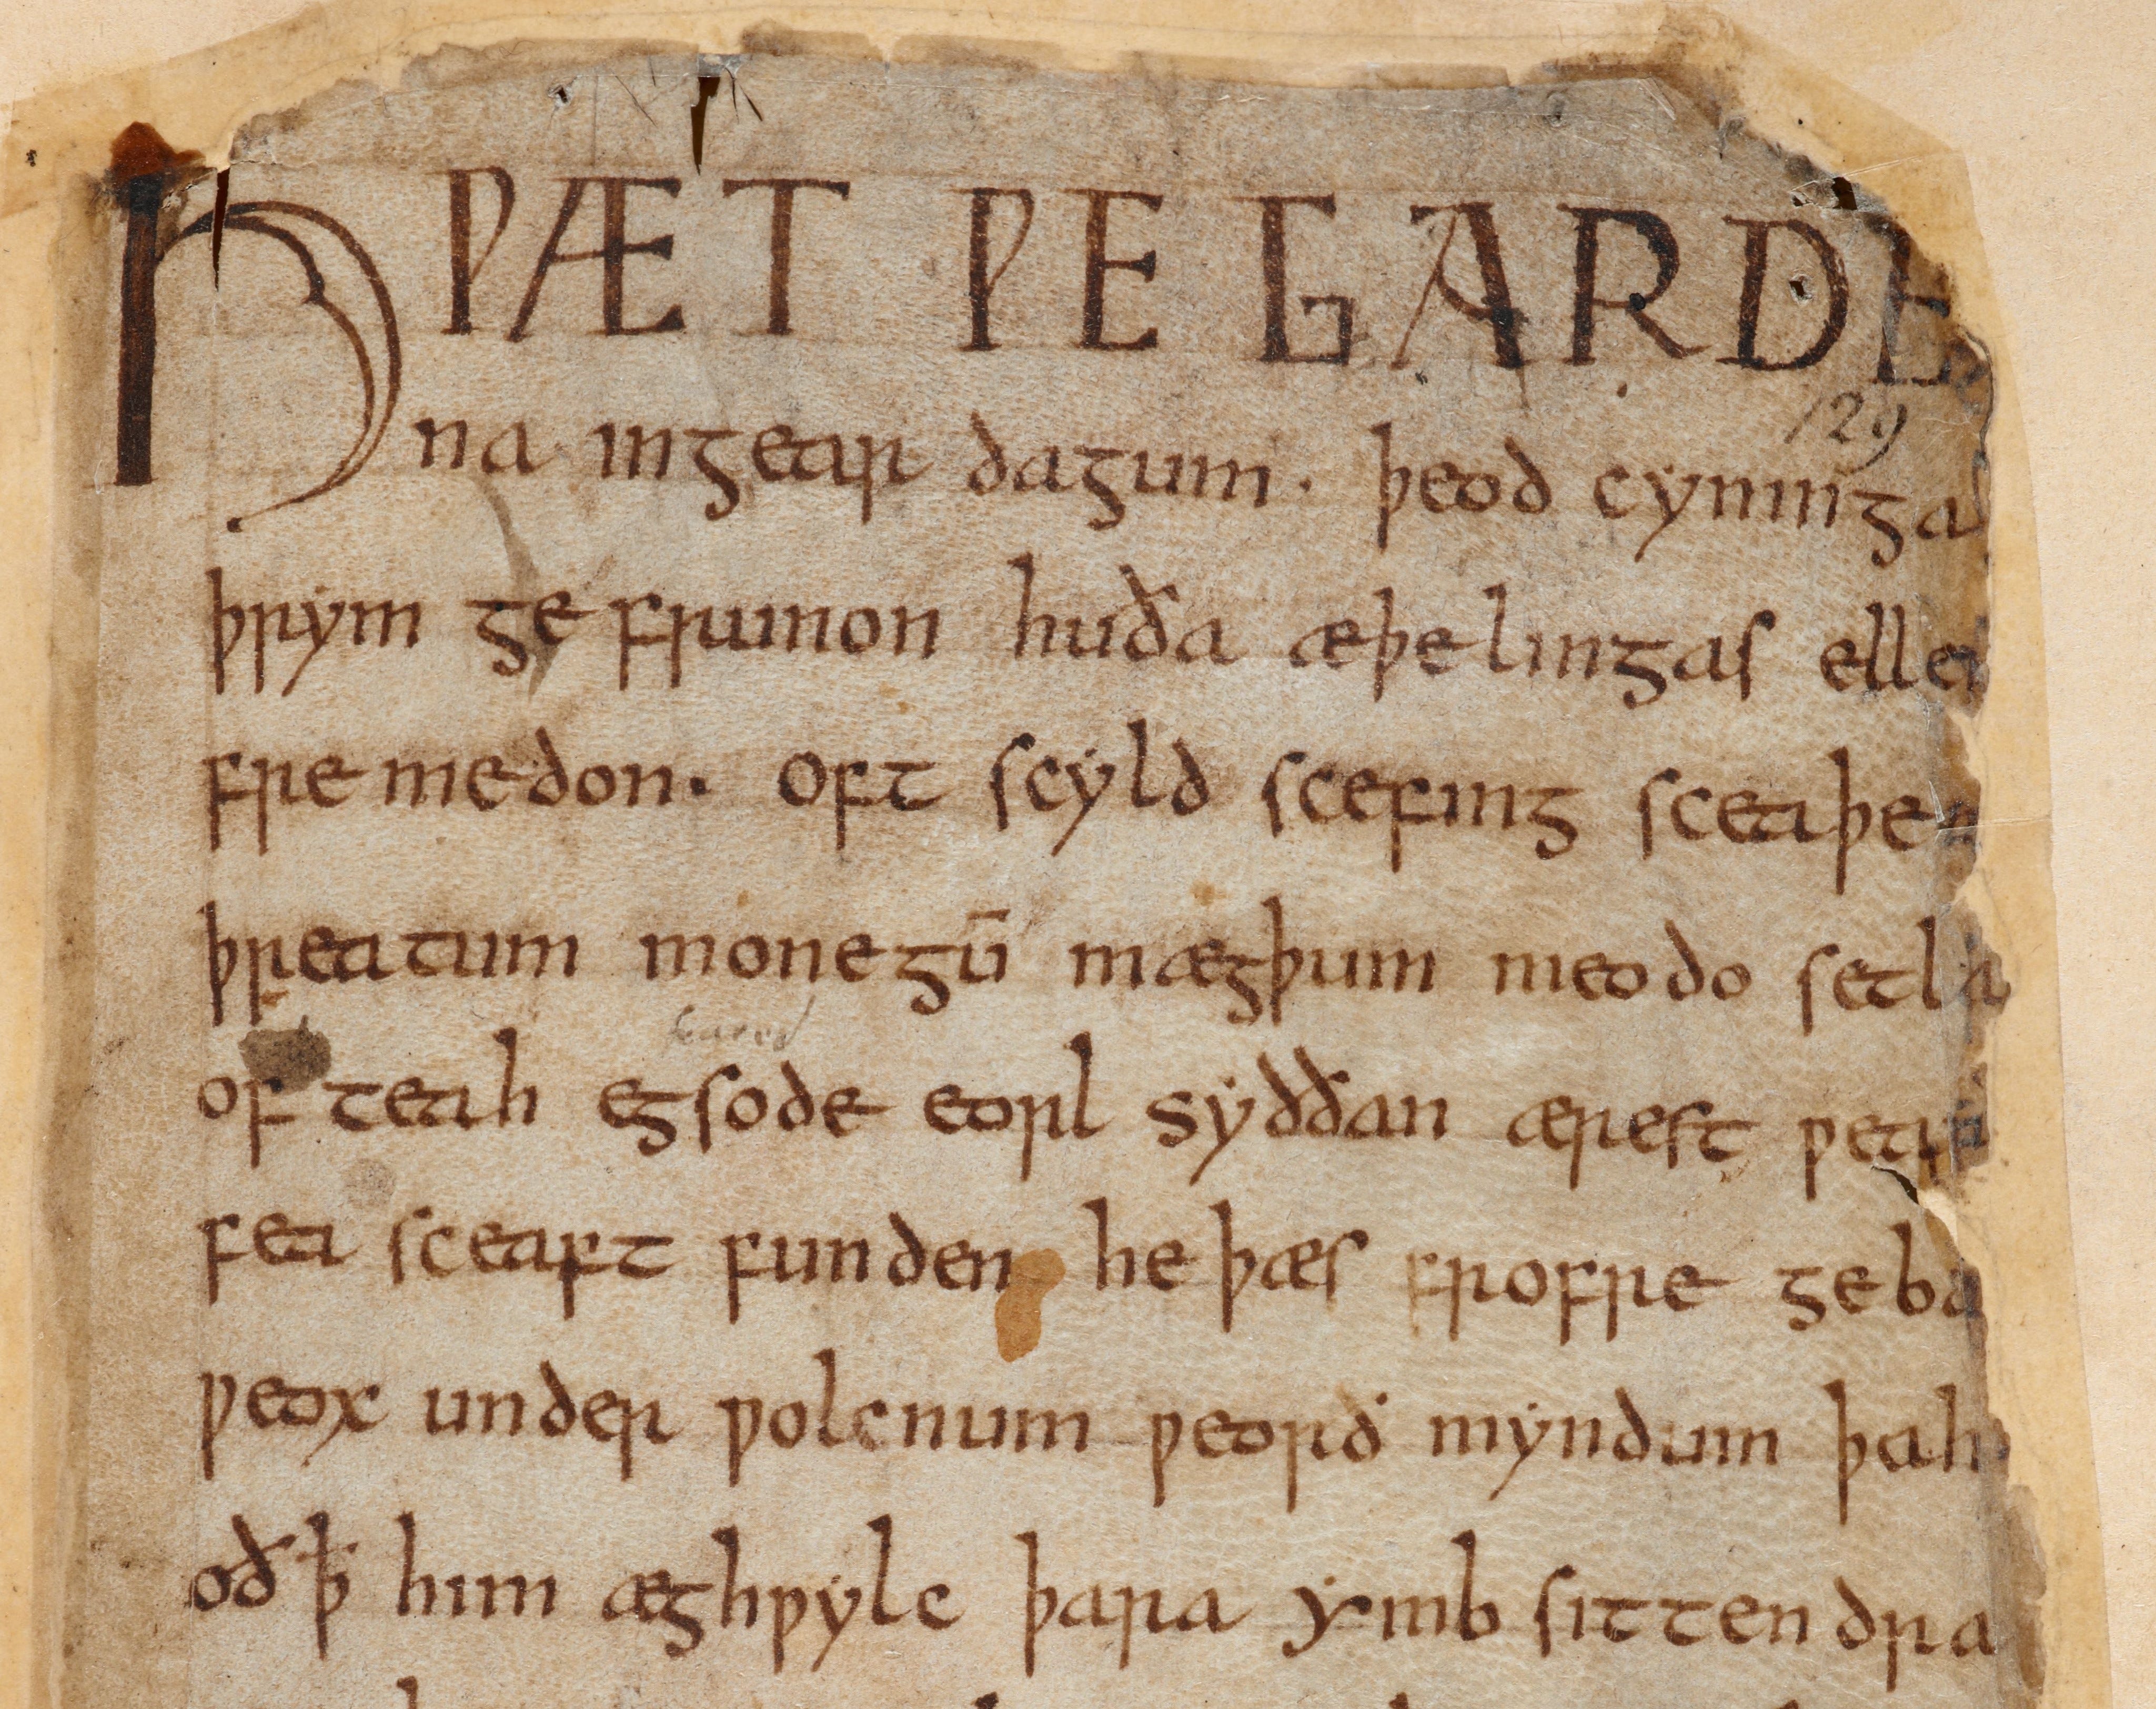 HǷÆT ǷE GARDE
129
na ingear dagum. þeod cyninga
þrym ge frunon huða æþelingas elle
fremedon. oft scyld scefing sceaþe
þreatum monegū mægþum meodo setla
feared
of teah egsode eorl syððan ærest ƿear
fea sceaft funden he þæs frofre geba
ƿeox under ƿolcnum ƿeorð myndum þah
oð ꝥ him æghƿylc þara ymb sittendra